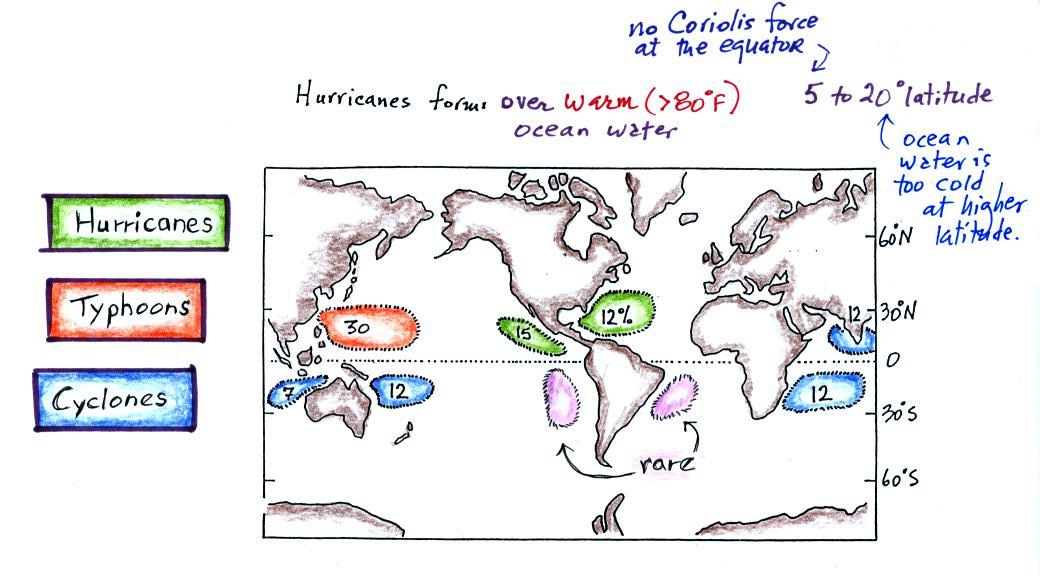 no Coriolis force
at the equator
Hurricanes form: over warm (>80°F)
ocean water
5 to 20° latitude
ocean
water is
too cold
at higher
latitude.
Hurricanes
Typhoons
Cyclones
60°N
30°N
0
30°S
60°S
30
15
12%
12
7
12
12
rare